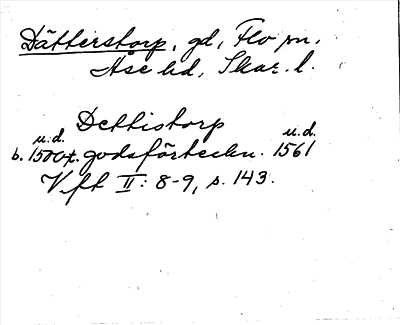 Dätterstorp, gd, Flo sn.
Åse hd, Skar. l.
Dettistorp
u.d. u.d.
b. 1500t. godsförteckn. 1561
Vft II: 8-9, s. 143.